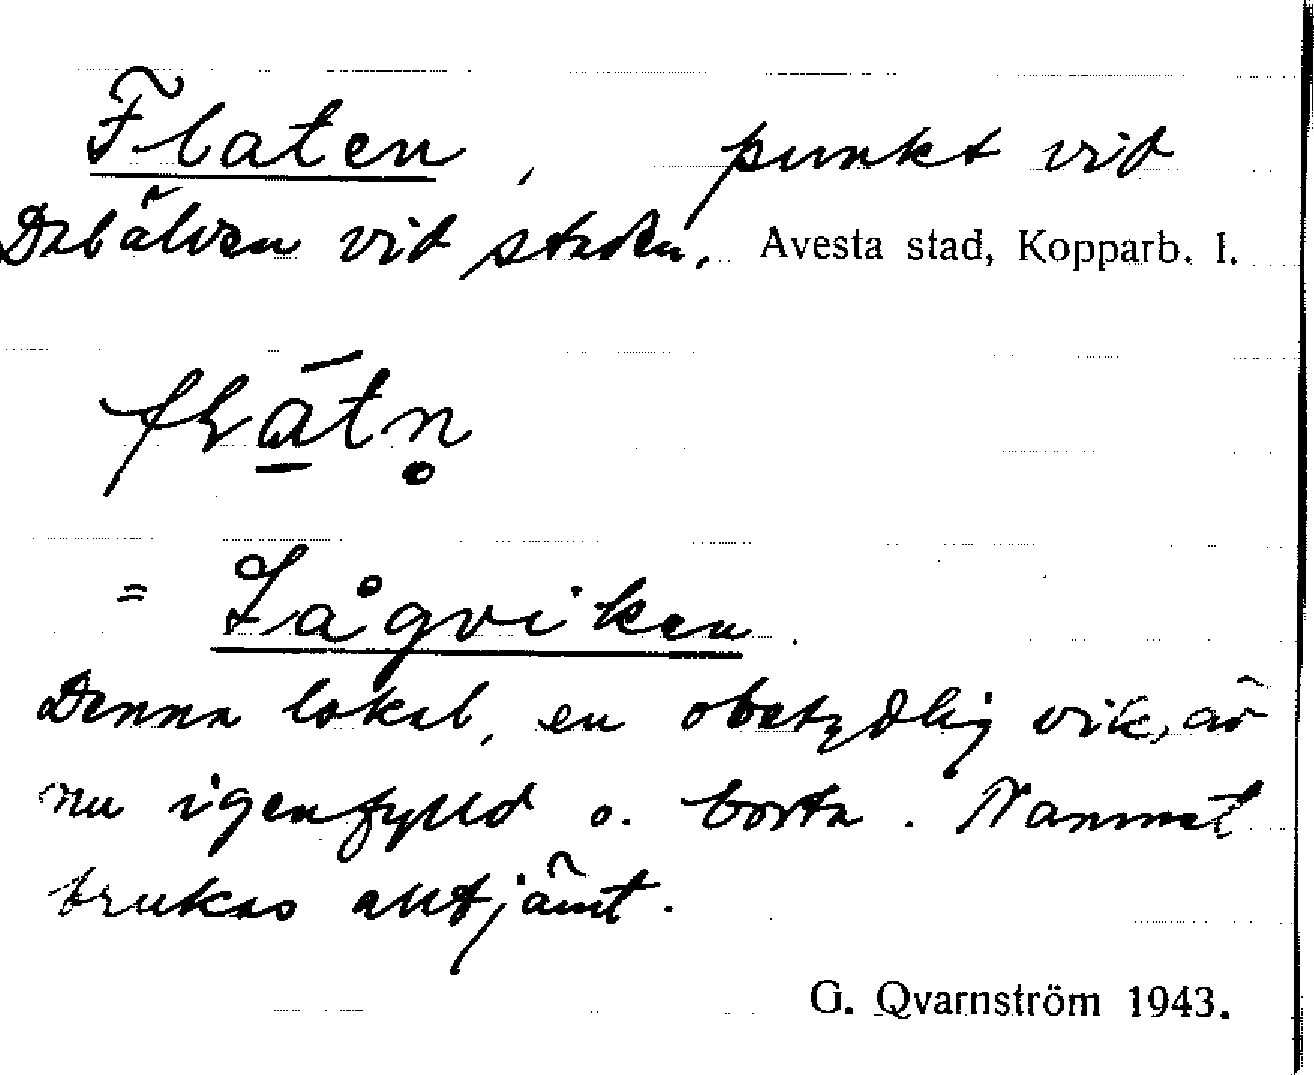 Flaten, punkt vid
Dalälven vid staden. Avesta stad, Kopparb. l.
= Lågviken.
Denna lokal, en obetydlig vik, är
nu igenfylld o. borta. Namnet
brukas alltjämt.
G. Qvarnström 1943.